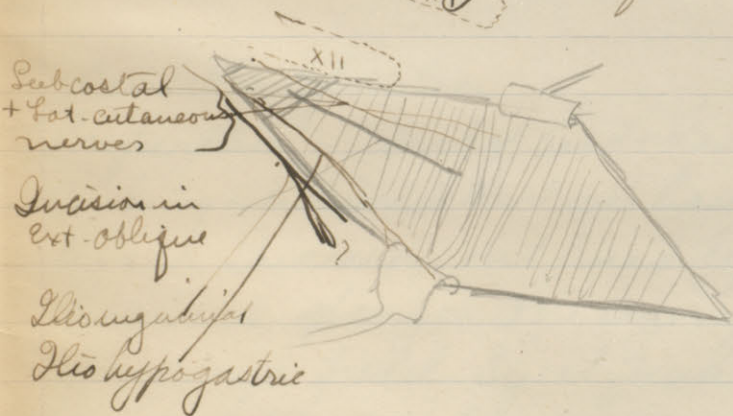 XII
Subcostal
+ Lat. cutaneous
nerves
Incision in
Ext. oblique
?
Ilioinguinal
Iliohypogastric